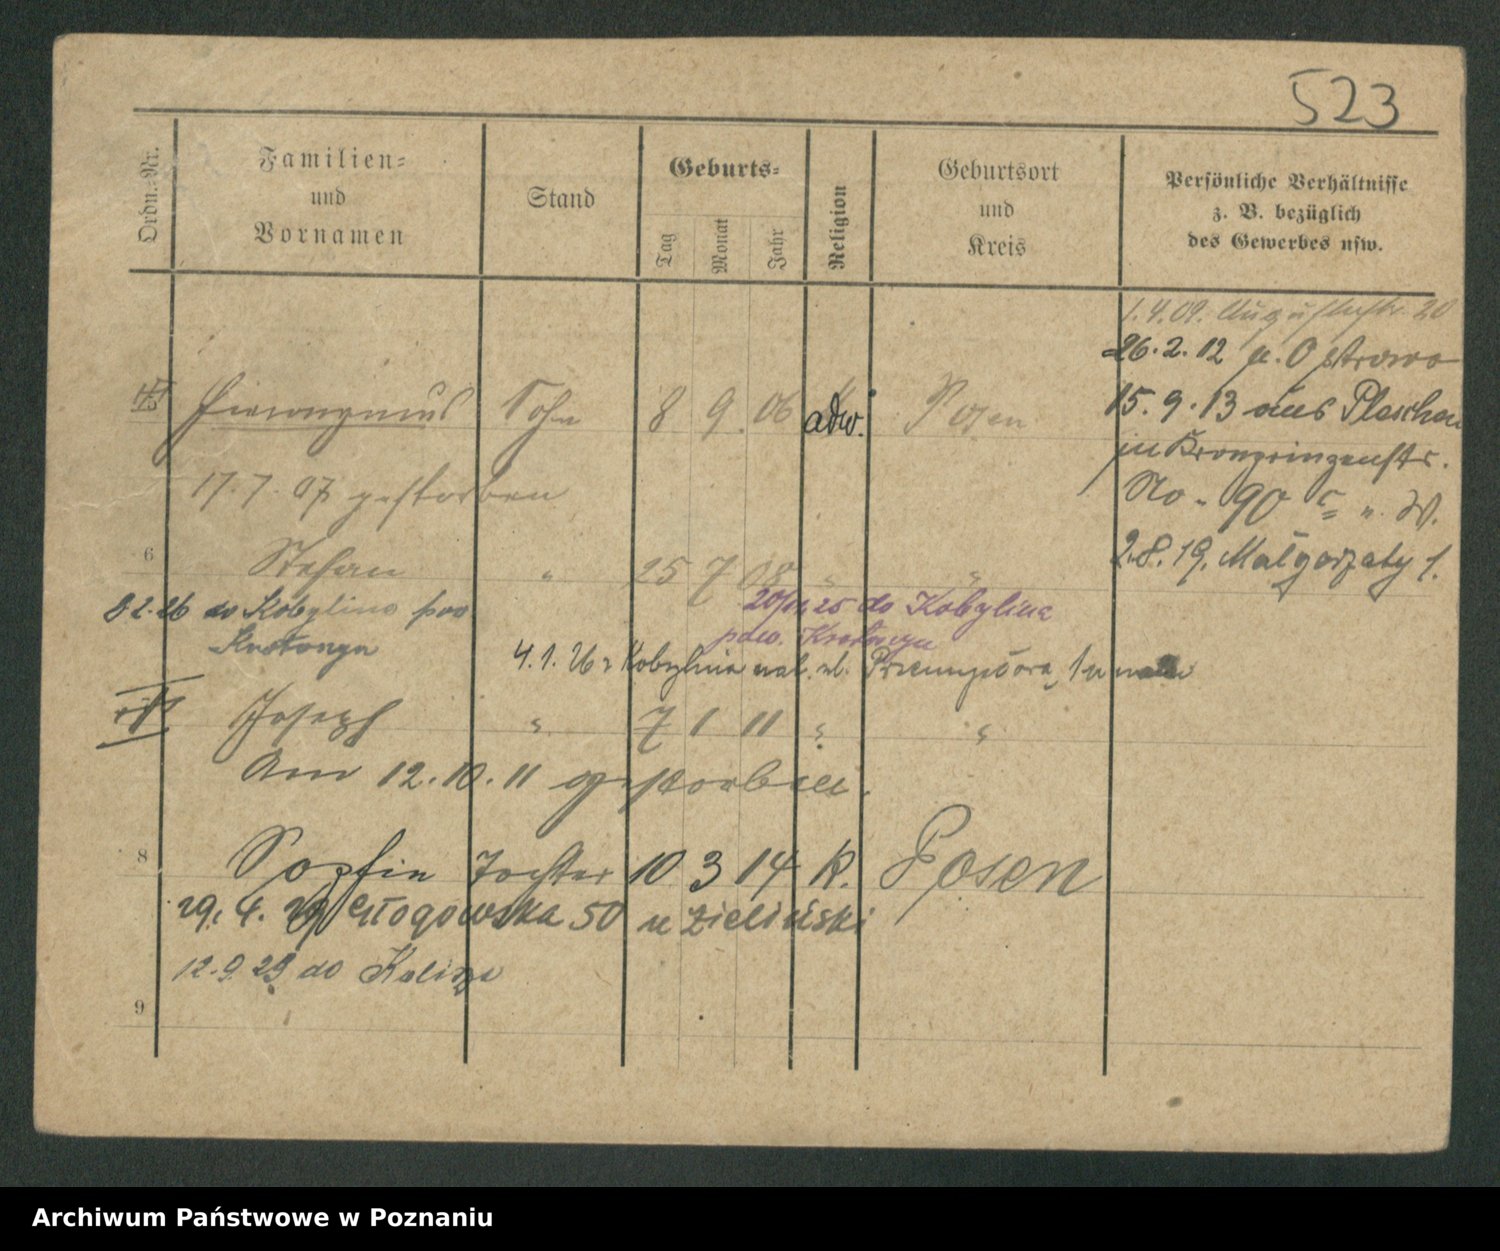 523
Ordn.-Nr.
Familien-
und
Vornamen
Stand
Geburts-
Tag
Monat
Jahr
Religion
Geburtsort
und
Kreis
Persönliche Verhältnisse
z. B. bezüglich
des Gewerbes usw.
1.4.09. Augustastr. 20
26.2.12 n. Ostrowo
15.9.13 aus Pleschen
in Kronprinzenstr.
No. 90
2.8.19. Małgorzaty 1.
Hieronymus Sohn 8 9 06 Posen
17.7.07 gestorben
6 Stefan " 25 7 08 " "
8 2.26 do Kobylina pow
Krotoszyn
20/12 25 do Kobylina
pow. Krotoszyn
4.1.26 z Kobylina
Joseph " 7 1 11 " "
Am 12.10.11 gestorben.
8 Sophie Tochter 10 3 14 K. Posen
29.4.29 Głogowska 50 u Zieliński
12.9.29 do Kalisza
9
Archiwum Państwowe w Poznaniu